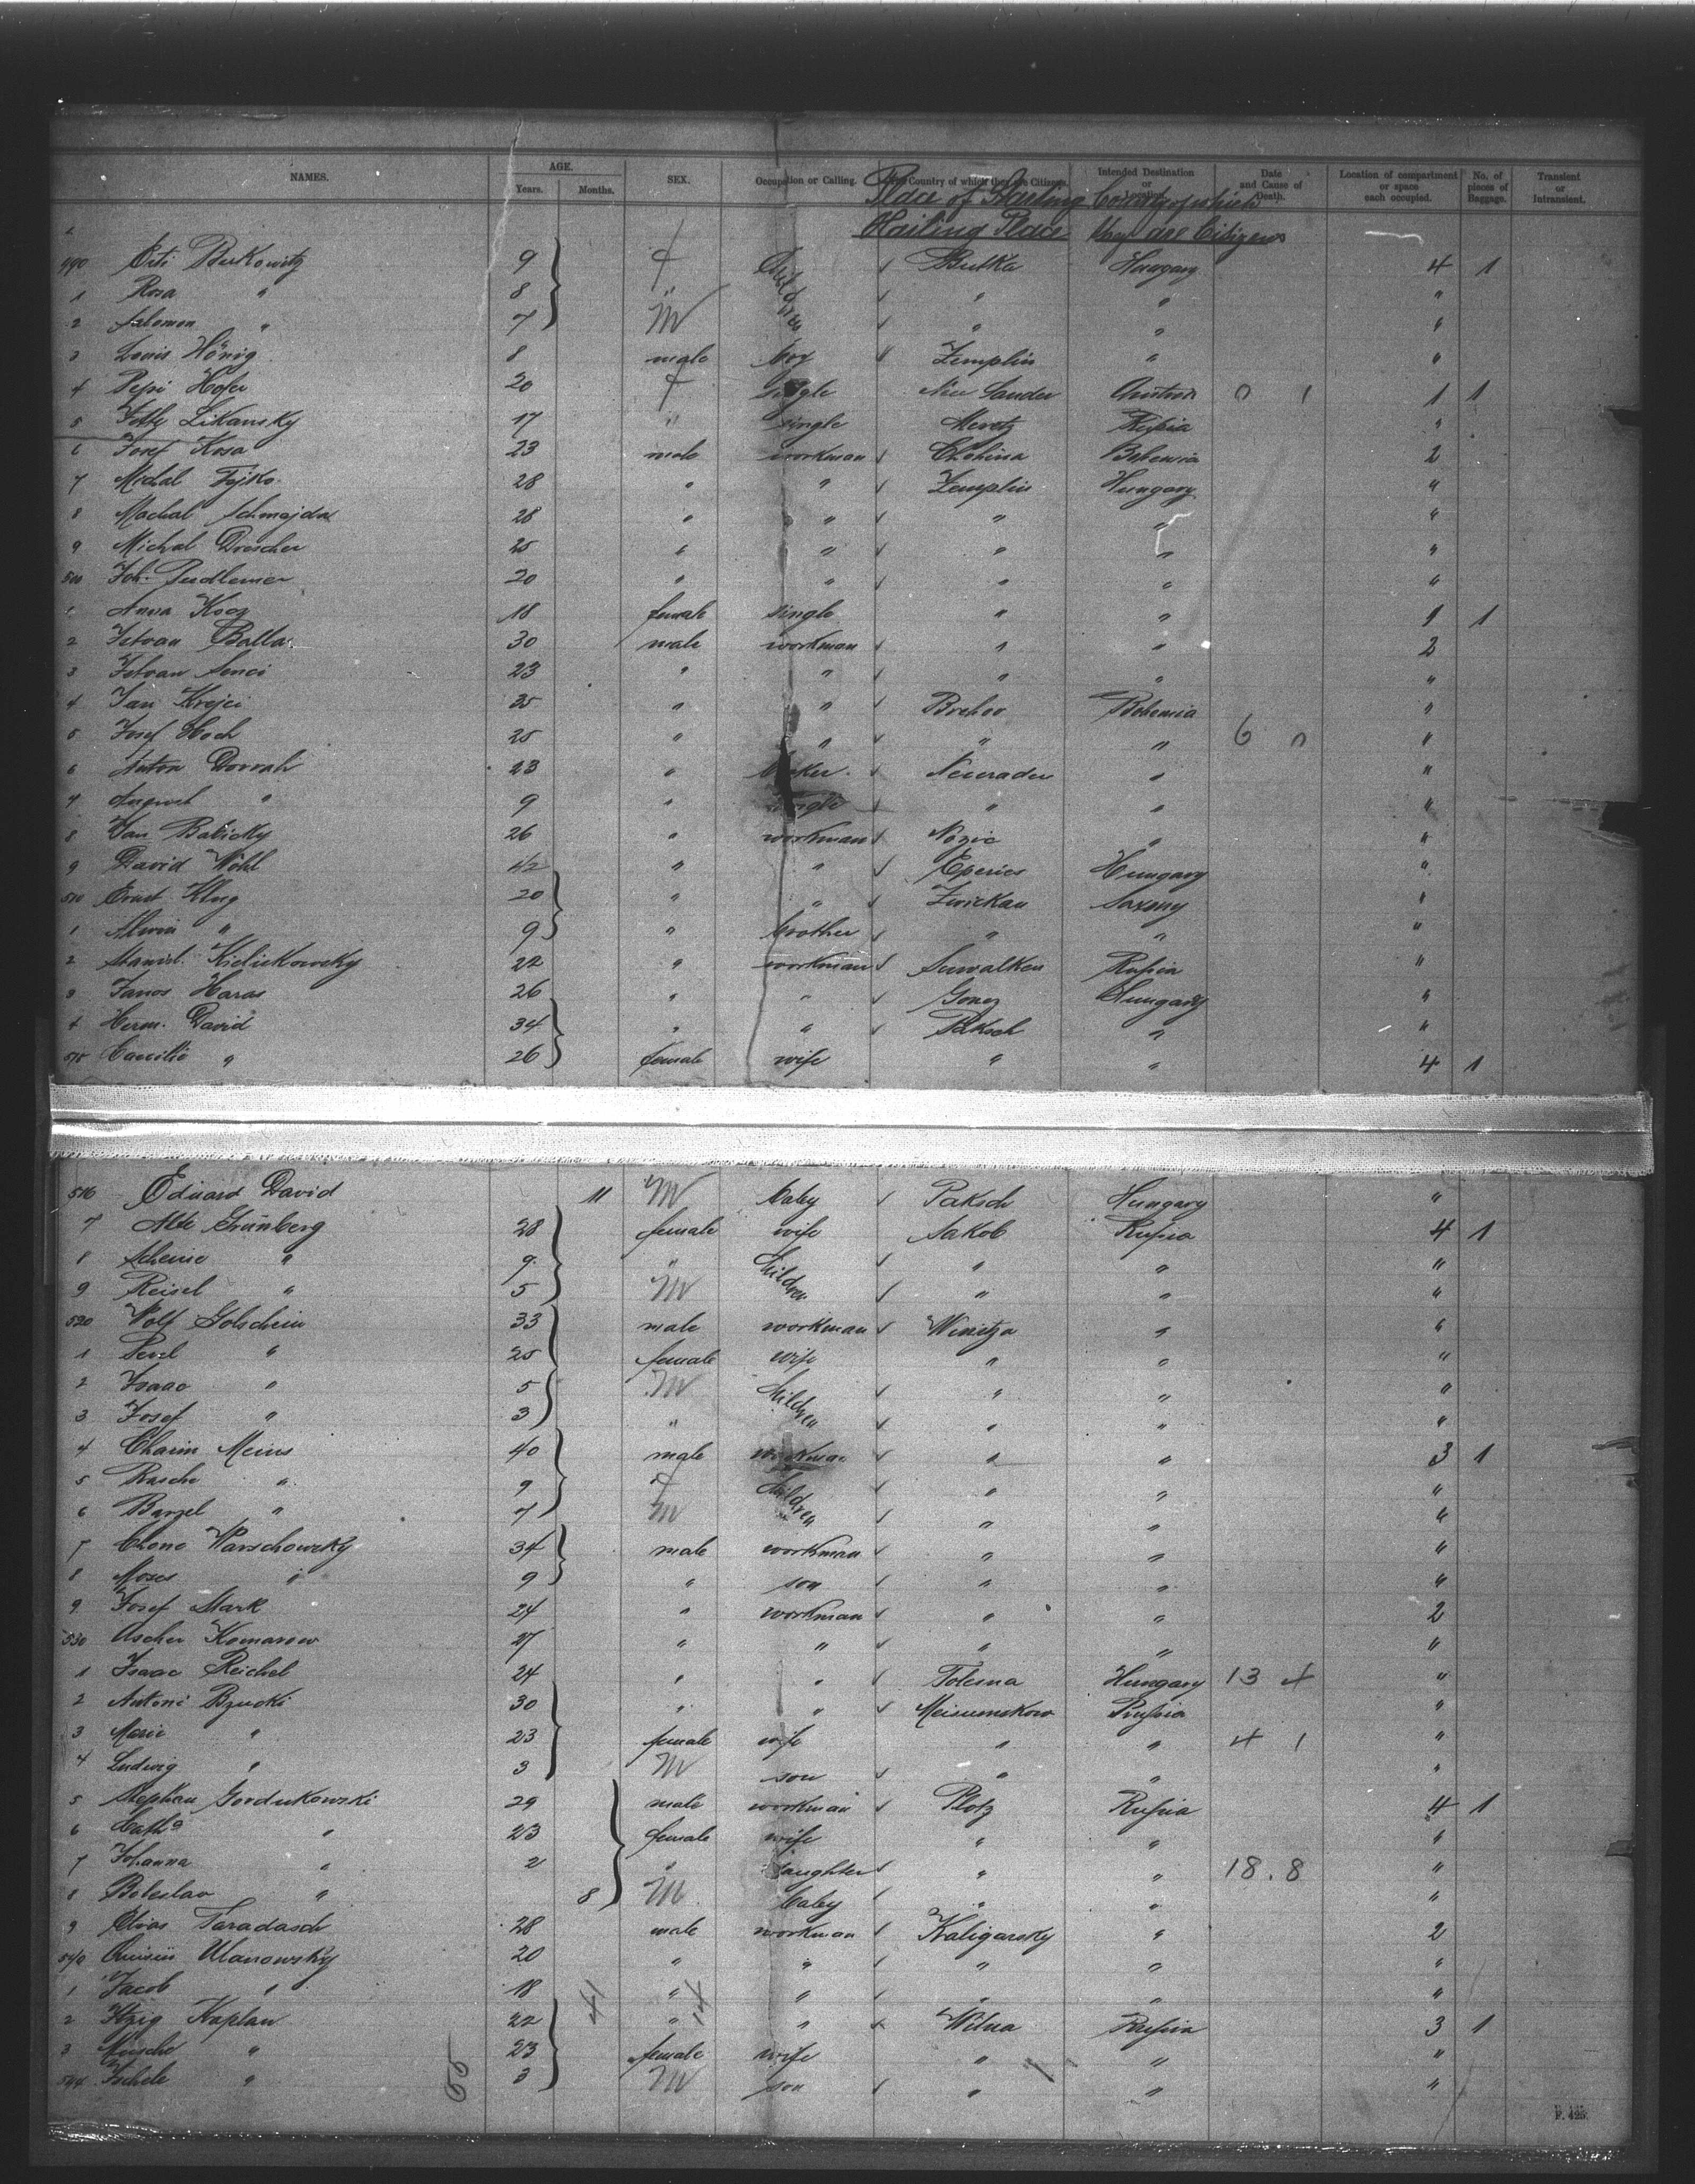 NAMES. AGE. Years. Months. SEX. Occupation or Calling. The Country of which they are Citizens. Intended Destination or Location. Date and Cause of Death. Location of compartment or space each occupied. No. of pieces of Baggage. Transient or Intransient.
Place of Starting Country of which
Hailing Place they are Citizens
490 Berkowitz 9 f Children Butka Hungary 4 1
1 Rosa " 8 " " " "
2 Salomon " 7 M " " "
3 Louis Hönig 8 male boy Zemplin " "
4 Pepi Hofer 20 f Single Neu Sander Austria 0 1 1 1
5 Likansky 17 " single Meretz Russia "
6 Josef Kosa 23 male workman Bohemia 2
7 Michal Fejko 28 " " Zemplin Hungary "
8 Machal Schmajda 28 " " " " "
9 Michal Drescher 25 " " " " "
500 Joh. 20 " " " " "
1 Anna Kocz 18 female single " " 1 1
2 Istvan Balla 30 male workman " " 2
3 Istvan Senci 23 " " " " "
4 Jan Krejci 35 " " Brehov Bohemia "
5 Josef Hoch 25 " " " " 6 0 "
6 Anton Dorrah 23 " " "
7 " 9 " single " " "
8 Jan Babicky 26 " workman " "
9 David Wohl 42 " " Eperies Hungary "
510 Ernst Klug 20 " " Zwickau Saxony "
1 Alwin " 9 " brother " " "
2 Stanisl. 22 " workman Suwalken Russia "
3 Janos Haras 26 " " Gonez Hungary "
4 Herm. David 34 " " Paksch " "
515 " 26 female wife " " 4 1
516 Eduard David 11 M baby Paksch Hungary "
7 Alte Grünberg 28 female wife Jakob Russia 4 1
8 Scheine " 9 " Children " " "
9 Reisel " 5 M " " "
520 Wolf Golschein 33 male workman Winitza " "
1 " 25 female wife " " "
2 Isaac " 5 M Children " " "
3 Josef " 3 " " " "
4 Chaim Meius 40 male workman " " 3 1
5 Rasche " 9 f Children " " "
6 " 7 M " " "
7 Chone Warschowsky 34 male workman " " "
8 Moses " 9 " son " " "
9 Josef Stark 24 " workman " " 2
530 Ascher Komarow 27 " " " " "
1 Isaac Reichel 24 " " Tolesna Hungary 13 4 "
2 Antoni Bzucki 30 " " "
3 Marie " 23 female wife " " 4 1 "
4 Ludwig " 3 M son " " "
5 Stephan Gordukowski 29 male workman Plotz Russia 4 1
6 Catha " 23 female wife " " "
7 Johanna " 2 " daughter " " 18.8 "
8 Boleslav " 8 M baby " " "
9 Elias Taradasch 28 male workman Kaligarsky " 2
540 Ulanowsky 20 " " " " "
1 Jacob " 18 " " " " "
2 Itzig Kaplan 22 " " Wilna Russia 3 1
3 " 23 female wife " " "
544 " 3 M son " " "
41 14
55
P. 425